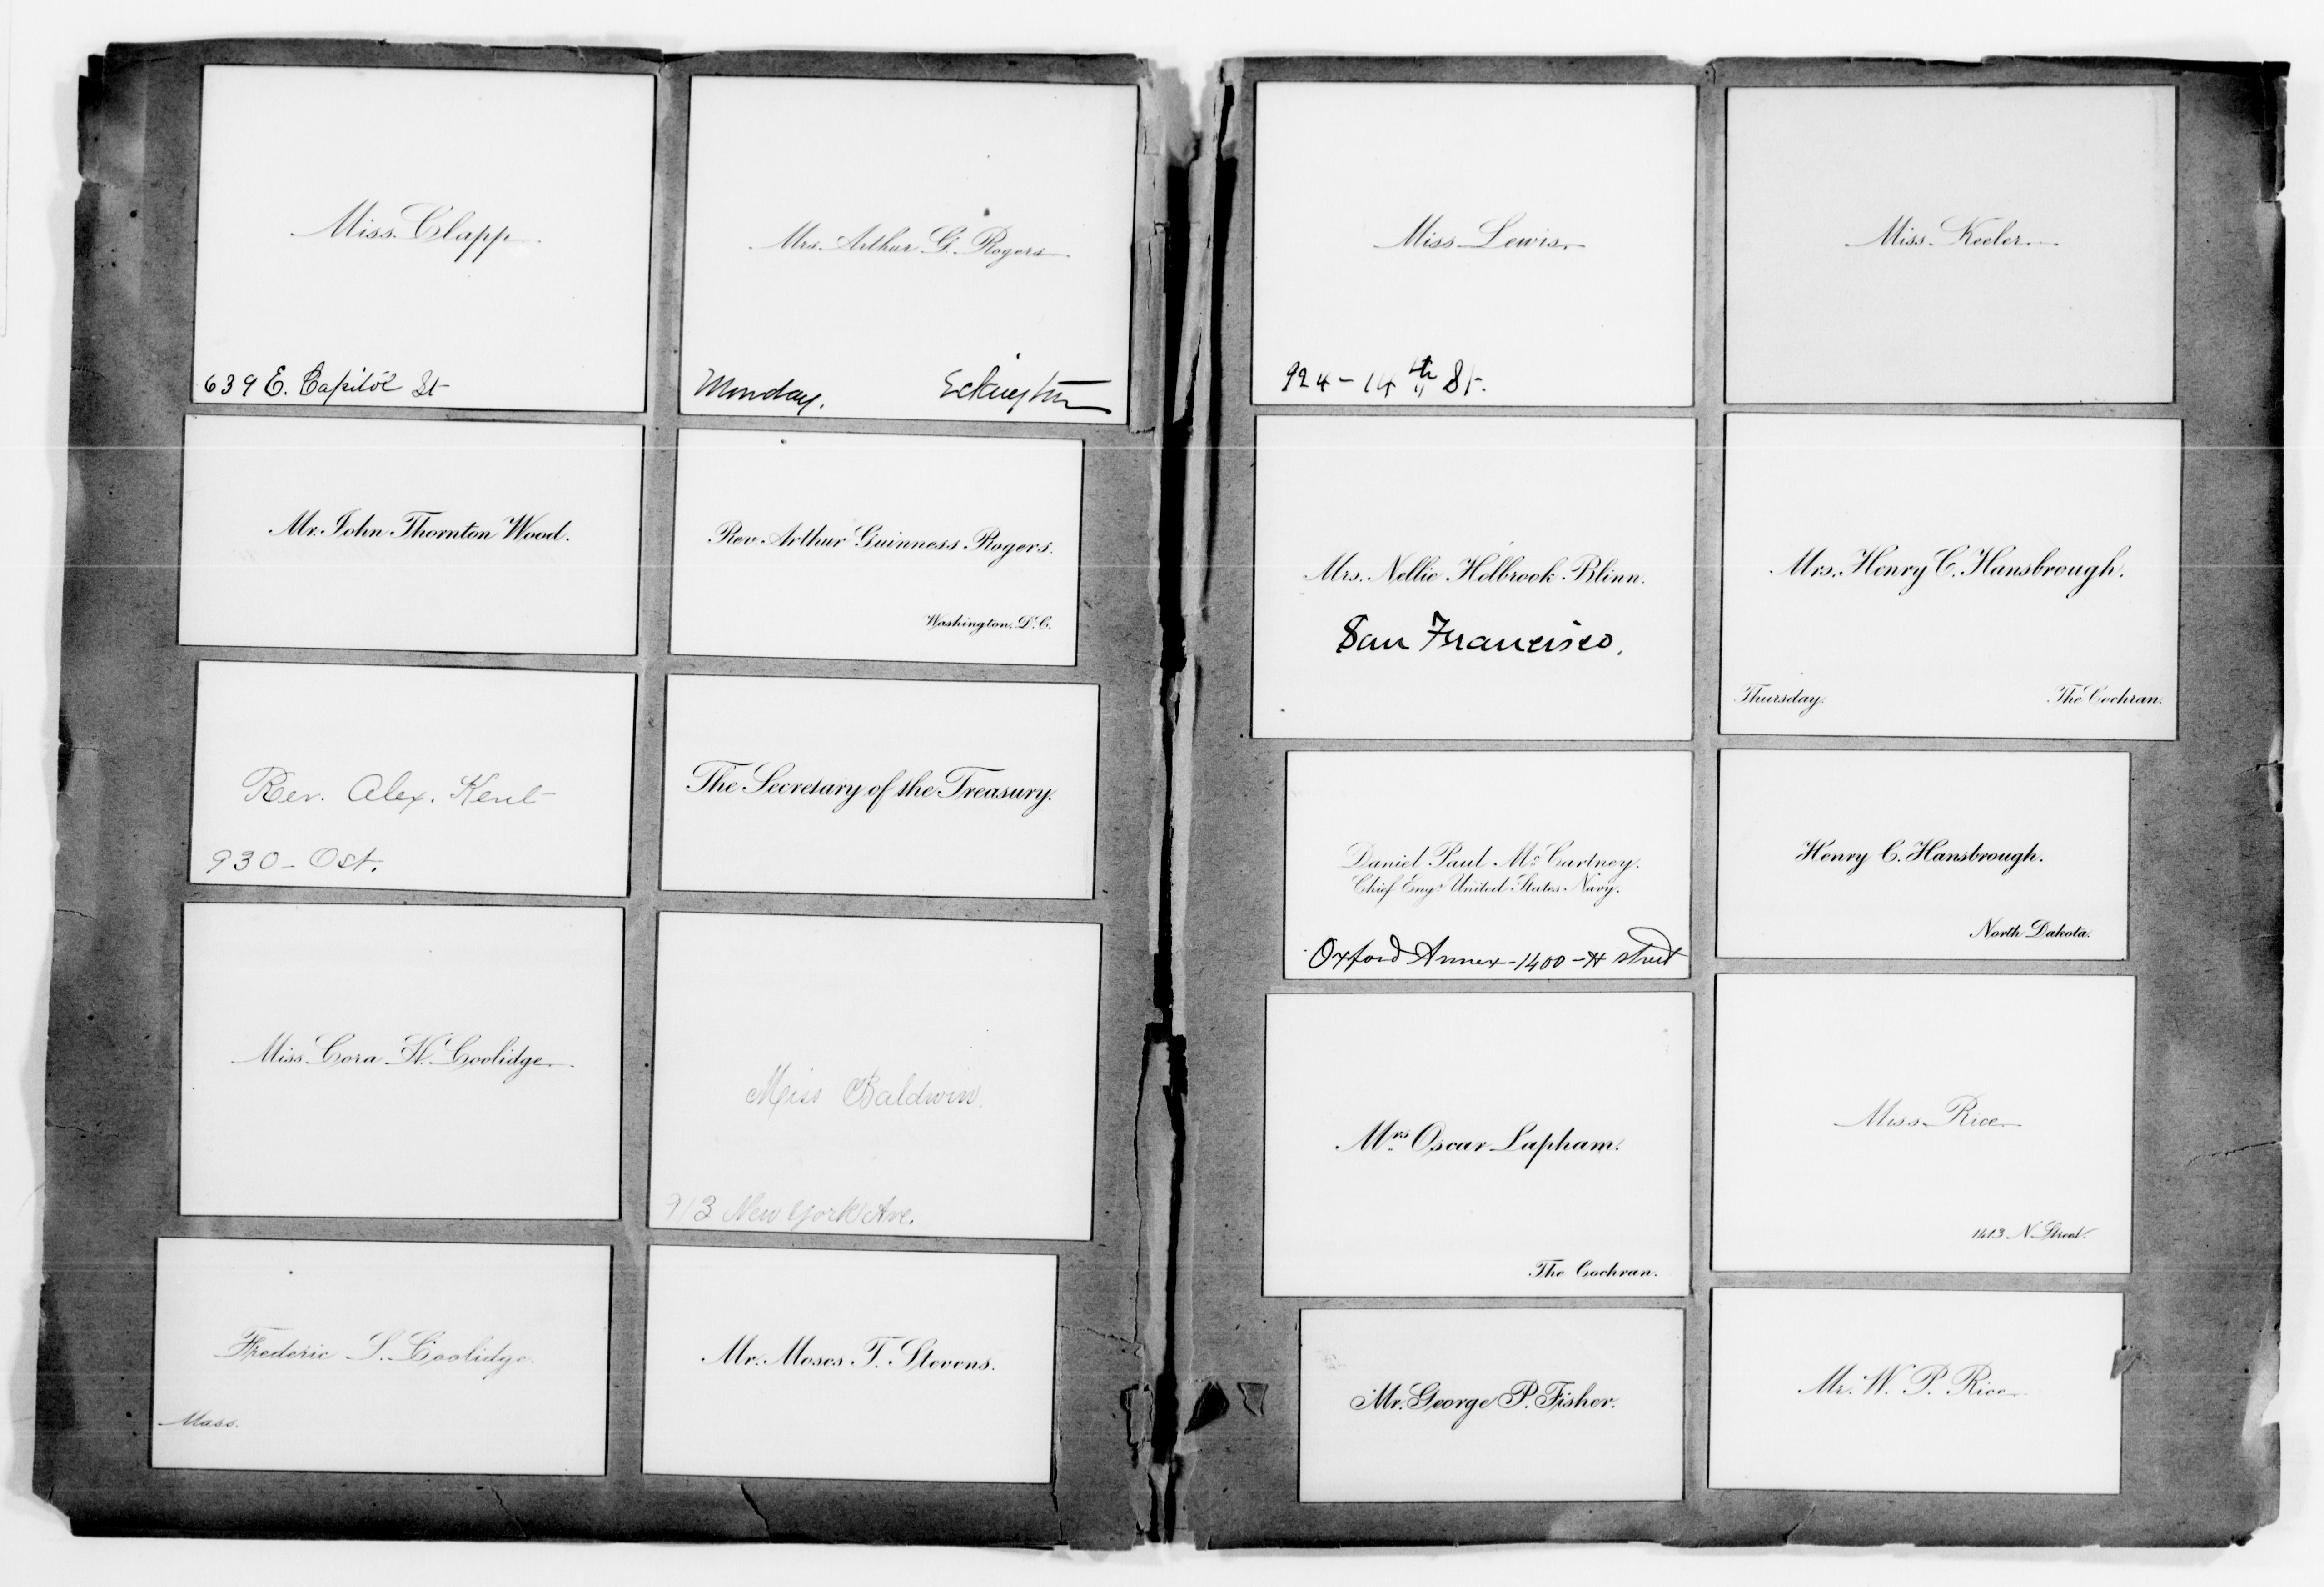 Miss Clapp
639 E. Capitol St
Mrs. Arthur G. Rogers
Monday. Eckington
Mr. John Thornton Wood.
Rev. Arthur Guinness Rogers.
Washington, D.C.
Rev. Alex. Kent
930 - O St.
The Secretary of the Treasury.
Miss Cora H. Coolidge
Miss Baldwin
913 New York Ave.
Frederic S. Coolidge.
Mass.
Mr. Moses T. Stevens.
Miss Lewis.
924 - 14th St.
Miss Keeler
Mrs. Nellie Holbrook Blinn.
San Francisco.
Mrs. Henry C. Hansbrough.
Thursday. The Cochran.
Daniel Paul Mc Cartney.
Chief Engr United States Navy.
Oxford Annex - 1400 - H street
Henry C. Hansbrough.
North Dakota.
Mrs Oscar Lapham.
The Cochran.
Miss Rice
1413 N. Street.
Mr. George P. Fisher.
Mr. W. P. Rice